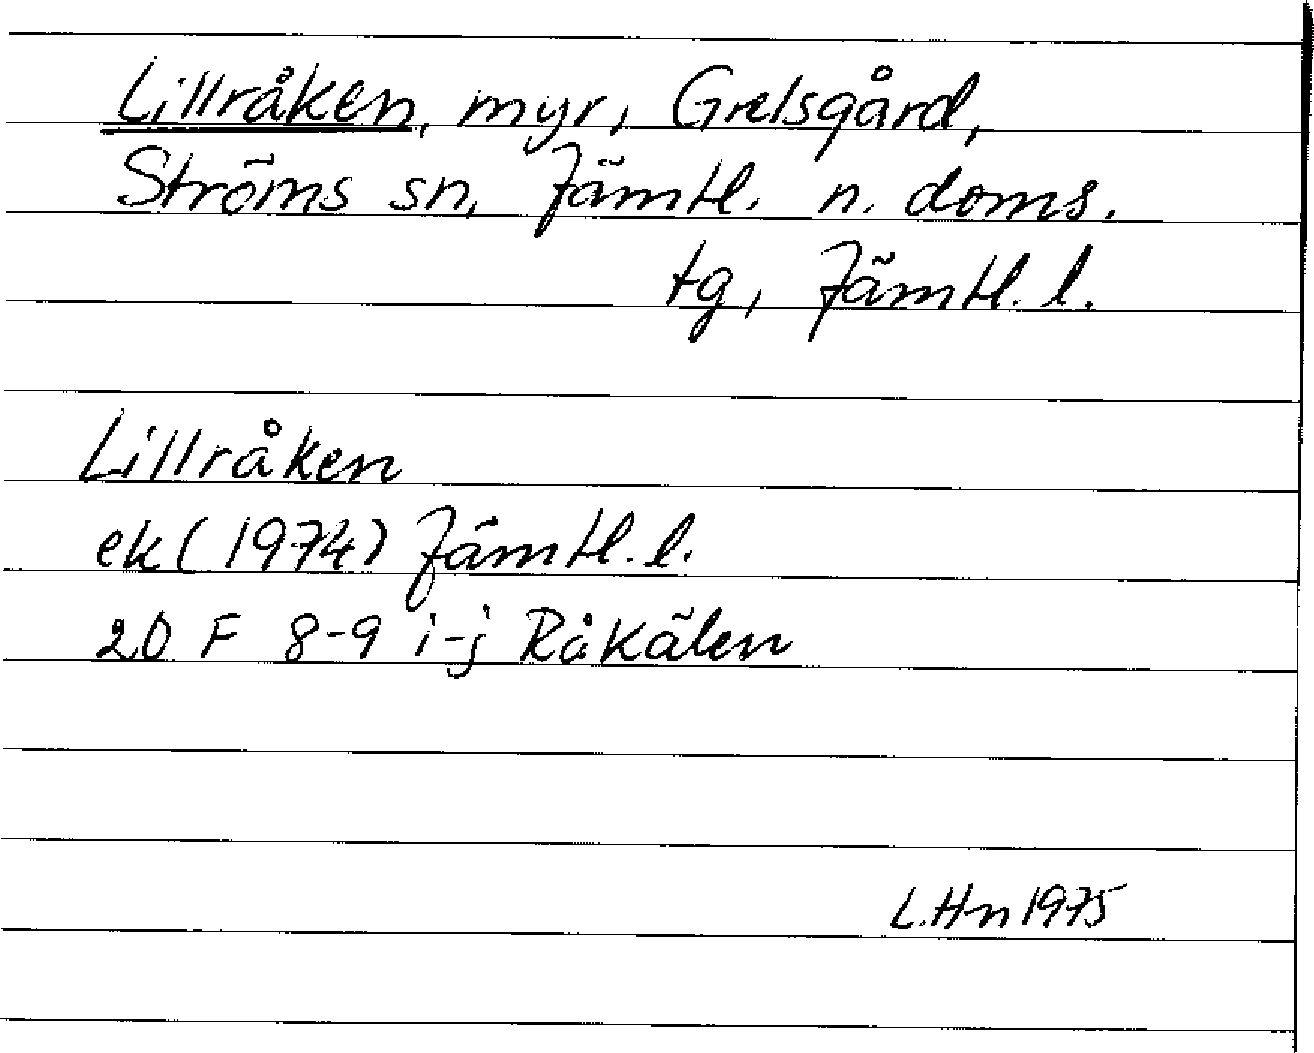 Lillråken, myr, Grelsgård,
Ströms sn, Jämtl. n. doms.
tg, Jämtl. l.
Lillråken
ek (1974) Jämtl. l.
20 F 8-9 i-j Råkälen
L.Hn 1975